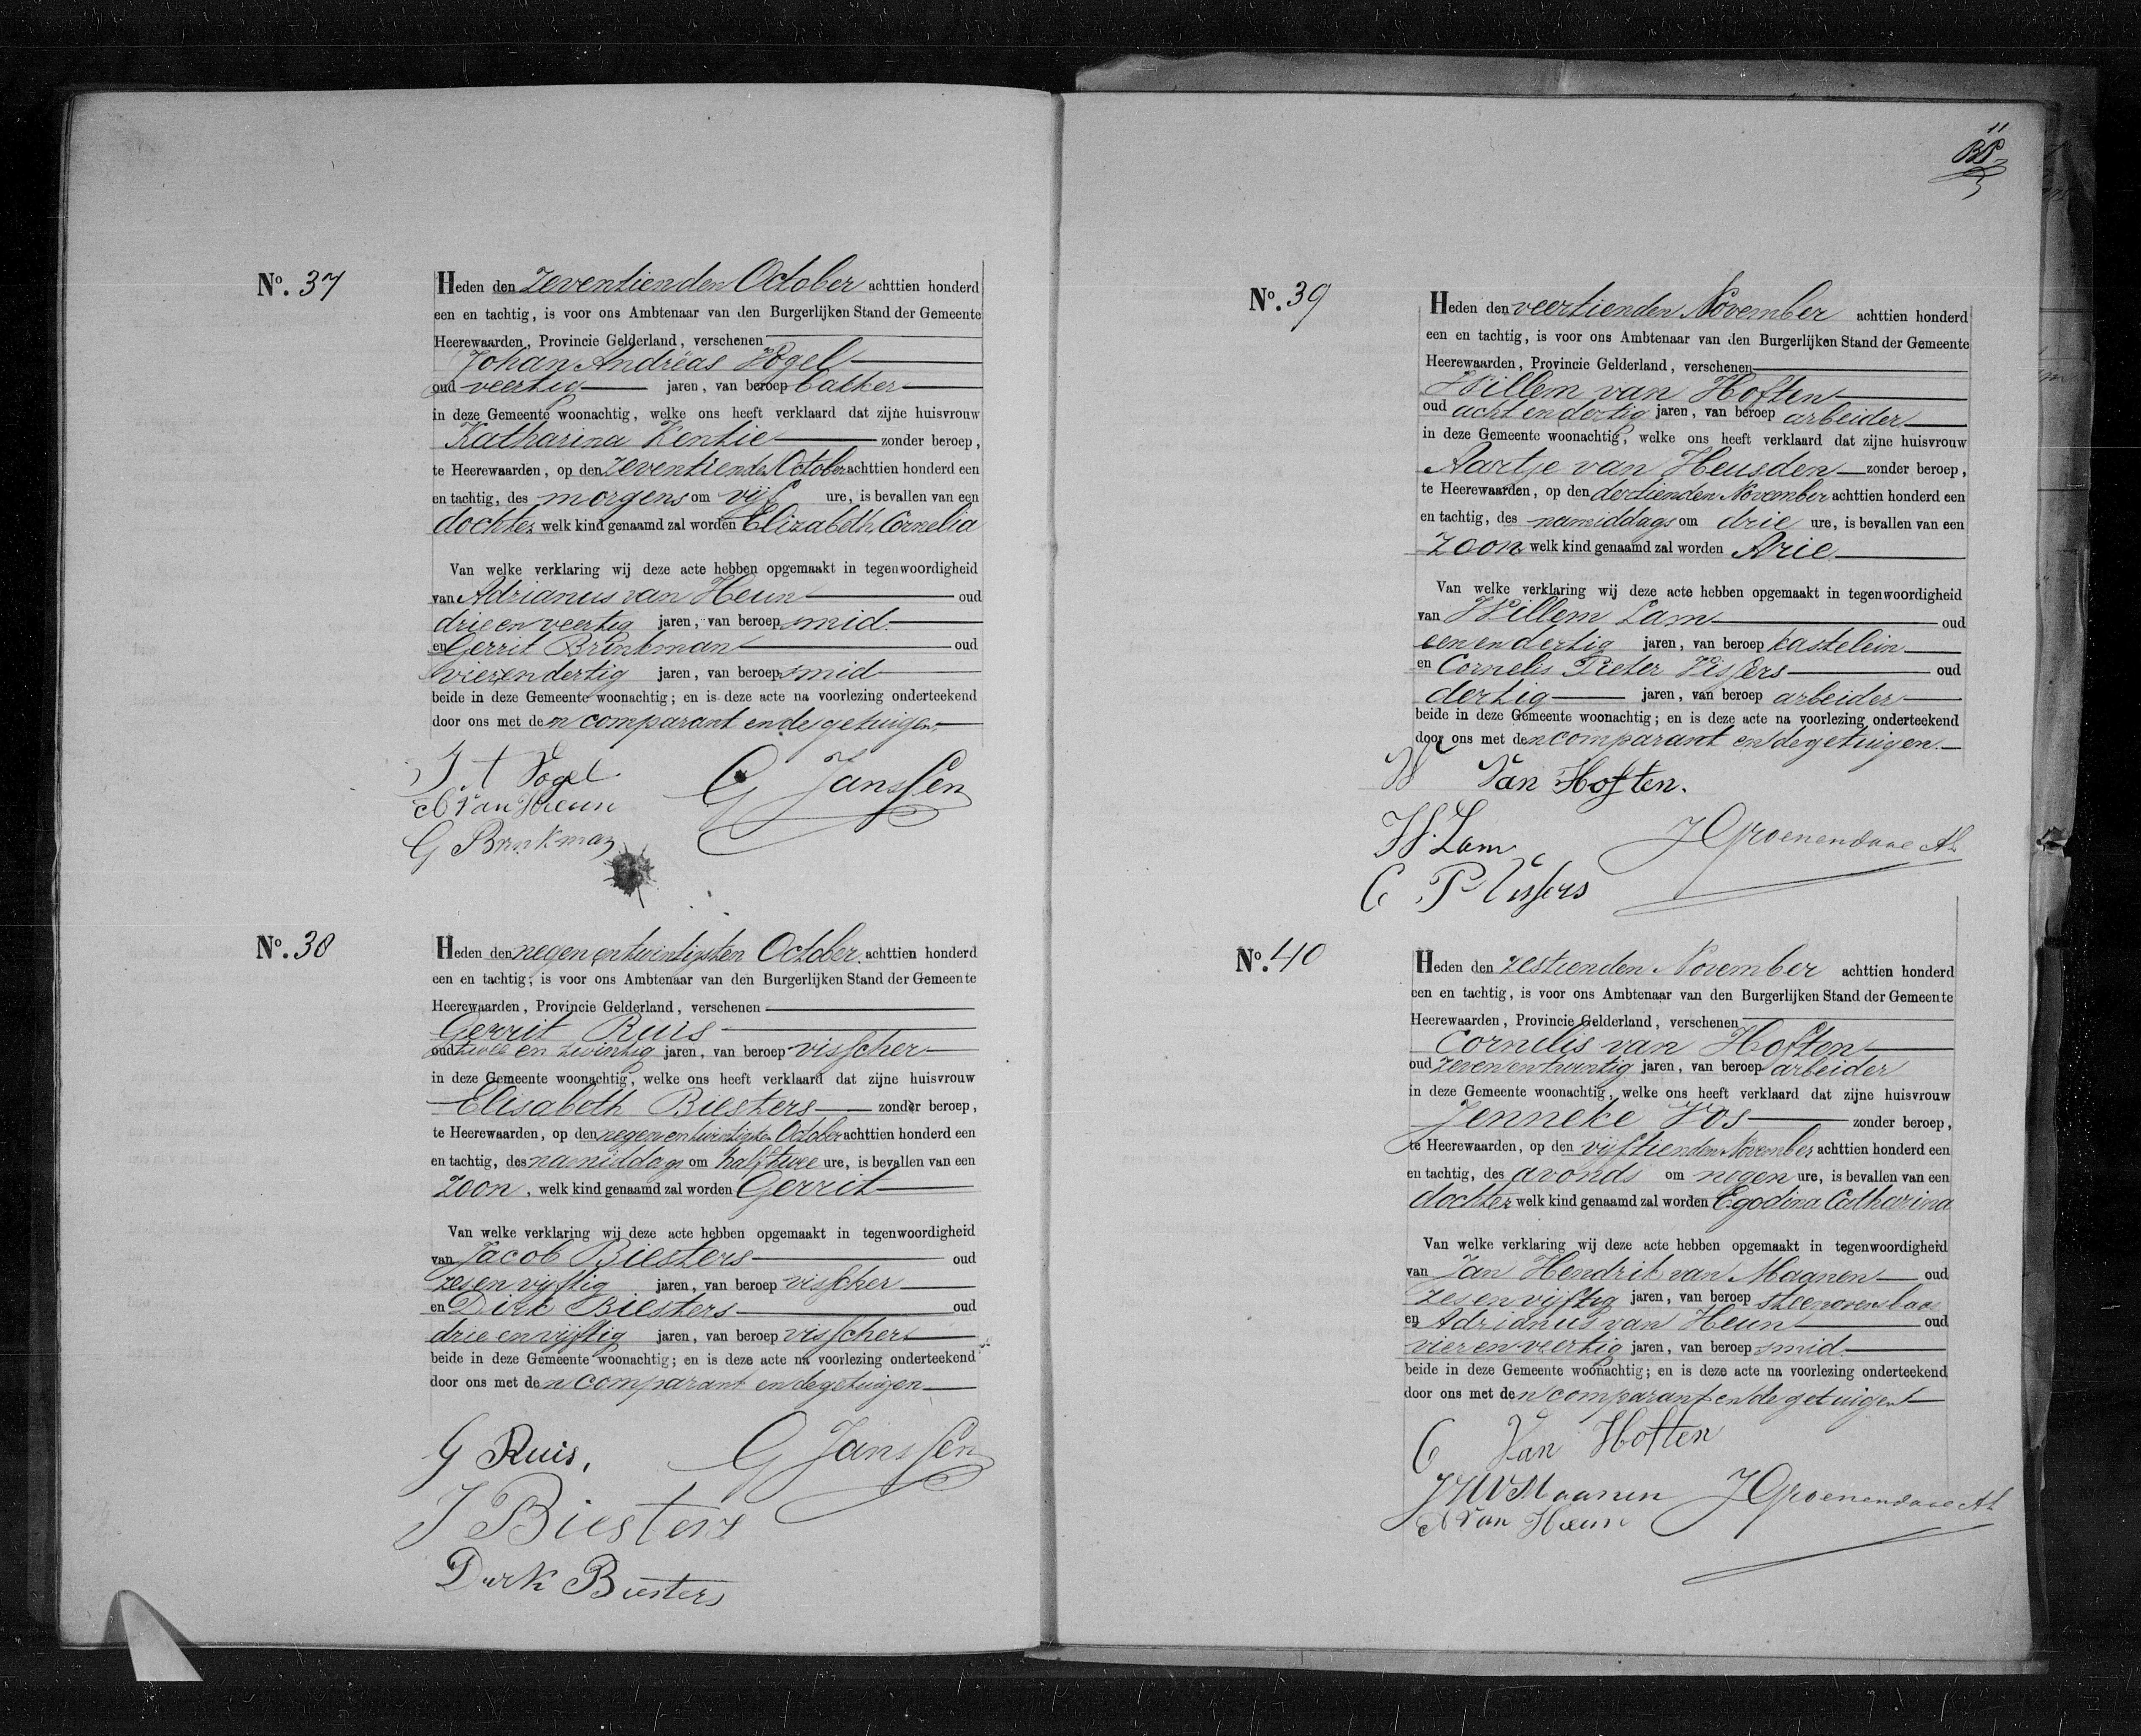 No. 37
Heden den zeventienden October achttien honderd
een en tachtig, is voor ons Ambtenaar van den Burgerlijken Stand der Gemeente
Heerewaarden, Provincie Gelderland, verschenen
Johan Andréas Vogel
oud veertig jaren, van beroep bakker
in deze Gemeente woonachtig, welke ons heeft verklaard dat zijne huisvrouw
Katharina Kentie zonder beroep,
te Heerewaarden, op den zeventienden October achttien honderd een
en tachtig, des morgens om vijf ure, is bevallen van een
dochter welk kind genaamd zal worden Elizabeth Cornelia
Van welke verklaring wij deze acte hebben opgemaakt in tegenwoordigheid
van Adrianus van Heun oud
drie en veertig jaren, van beroep smid
en Gerrit Brinkman oud
vierendertig jaren, van beroep smid
beide in deze Gemeente woonachtig; en is deze acte na voorlezing onderteekend
door ons met den comparant en de getuigen.
J A Vogel
G Janssen
A van Heun
G Brinkman
No. 38
Heden den negen en twintigsten October achttien honderd
een en tachtig, is voor ons Ambtenaar van den Burgerlijken Stand der Gemeente
Heerewaarden, Provincie Gelderland, verschenen
Gerrit Ruis
oud twee en twintig jaren, van beroep visscher
in deze Gemeente woonachtig, welke ons heeft verklaard dat zijne huisvrouw
Elisabeth Biesters zonder beroep,
te Heerewaarden, op den negen en twintigsten October achttien honderd een
en tachtig, des namiddags om half twee ure, is bevallen van een
zoon, welk kind genaamd zal worden Gerrit
Van welke verklaring wij deze acte hebben opgemaakt in tegenwoordigheid
van Jacob Biesters oud
zes en vijftig jaren, van beroep visscher
en Dirk Biesters oud
drie en vijftig jaren, van beroep visscher
beide in deze Gemeente woonachtig; en is deze acte na voorlezing onderteekend
door ons met den comparant en de getuigen
G Ruis.
G Janssen
J Biesters
Dirk Biesters
11
No. 39
Heden den veertienden November achttien honderd
een en tachtig, is voor ons Ambtenaar van den Burgerlijken Stand der Gemeente
Heerewaarden, Provincie Gelderland, verschenen
Willem van Hoften
oud acht en dertig jaren, van beroep arbeider
in deze Gemeente woonachtig, welke ons heeft verklaard dat zijne huisvrouw
Aartje van Heusden zonder beroep,
te Heerewaarden, op den dertienden November achttien honderd een
en tachtig, des namiddags om drie ure, is bevallen van een
zoon welk kind genaamd zal worden Arie
Van welke verklaring wij deze acte hebben opgemaakt in tegenwoordigheid
van Willem Lam oud
een en dertig jaren, van beroep kastelein
en Cornelis Pieter Vissers oud
dertig jaren, van beroep arbeider
beide in deze Gemeente woonachtig; en is deze acte na voorlezing onderteekend
door ons met den comparant en de getuigen.
W Van Hoften.
W. Lam
J Groenendaal
C. P Vissers
No. 40
Heden den zestienden November achttien honderd
een en tachtig, is voor ons Ambtenaar van den Burgerlijken Stand der Gemeente
Heerewaarden, Provincie Gelderland, verschenen
Cornelis van Hoften
oud zeven en twintig jaren, van beroep arbeider
in deze Gemeente woonachtig, welke ons heeft verklaard dat zijne huisvrouw
Jenneke Vos zonder beroep,
te Heerewaarden, op den vijftienden November achttien honderd een
en tachtig, des avonds om negen ure, is bevallen van een
dochter welk kind genaamd zal worden Egodina Catharina
Van welke verklaring wij deze acte hebben opgemaakt in tegenwoordigheid
van Jan Hendrik van Maanen oud
zes en vijftig jaren, van beroep steenovenbaas
en Adrianus van Heun oud
vier en veertig jaren, van beroep smid
beide in deze Gemeente woonachtig; en is deze acte na voorlezing onderteekend
door ons met den comparant en de getuigen
C Van Hoften
J H V Maanen
J Groenendaal
A van Heun